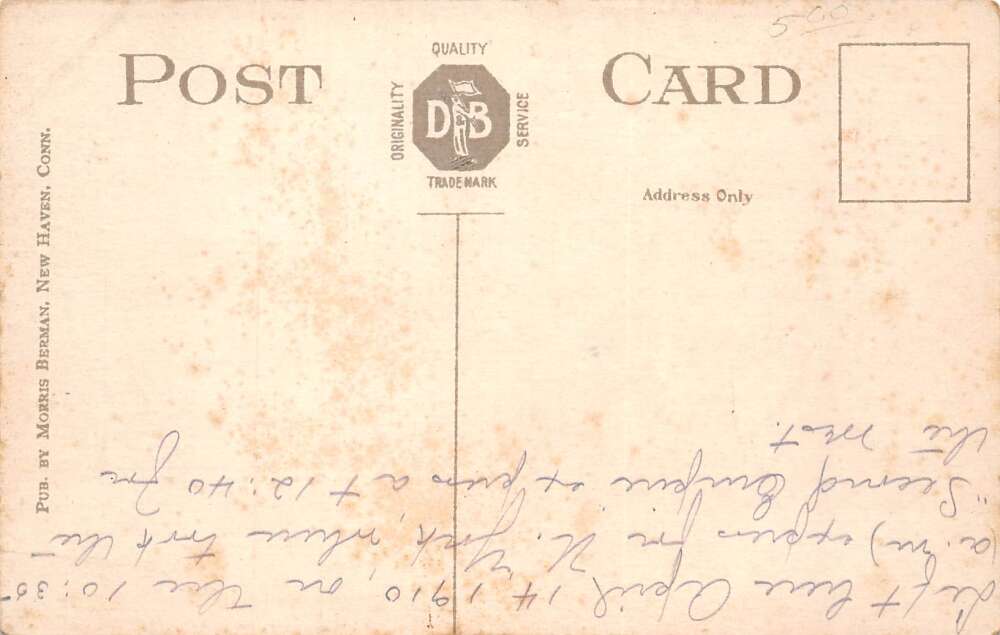 5.00
POST CARD
QUALITY
ORIGINALITY
DB
SERVICE
TRADE MARK
Address Only
PUB. BY MORRIS BERMAN, NEW HAVEN, CONN.
Left here April 14 1910, on the 10:35-
(a.m) express for N. York, where took the
"Second Empire express at 12:40 for
the West.